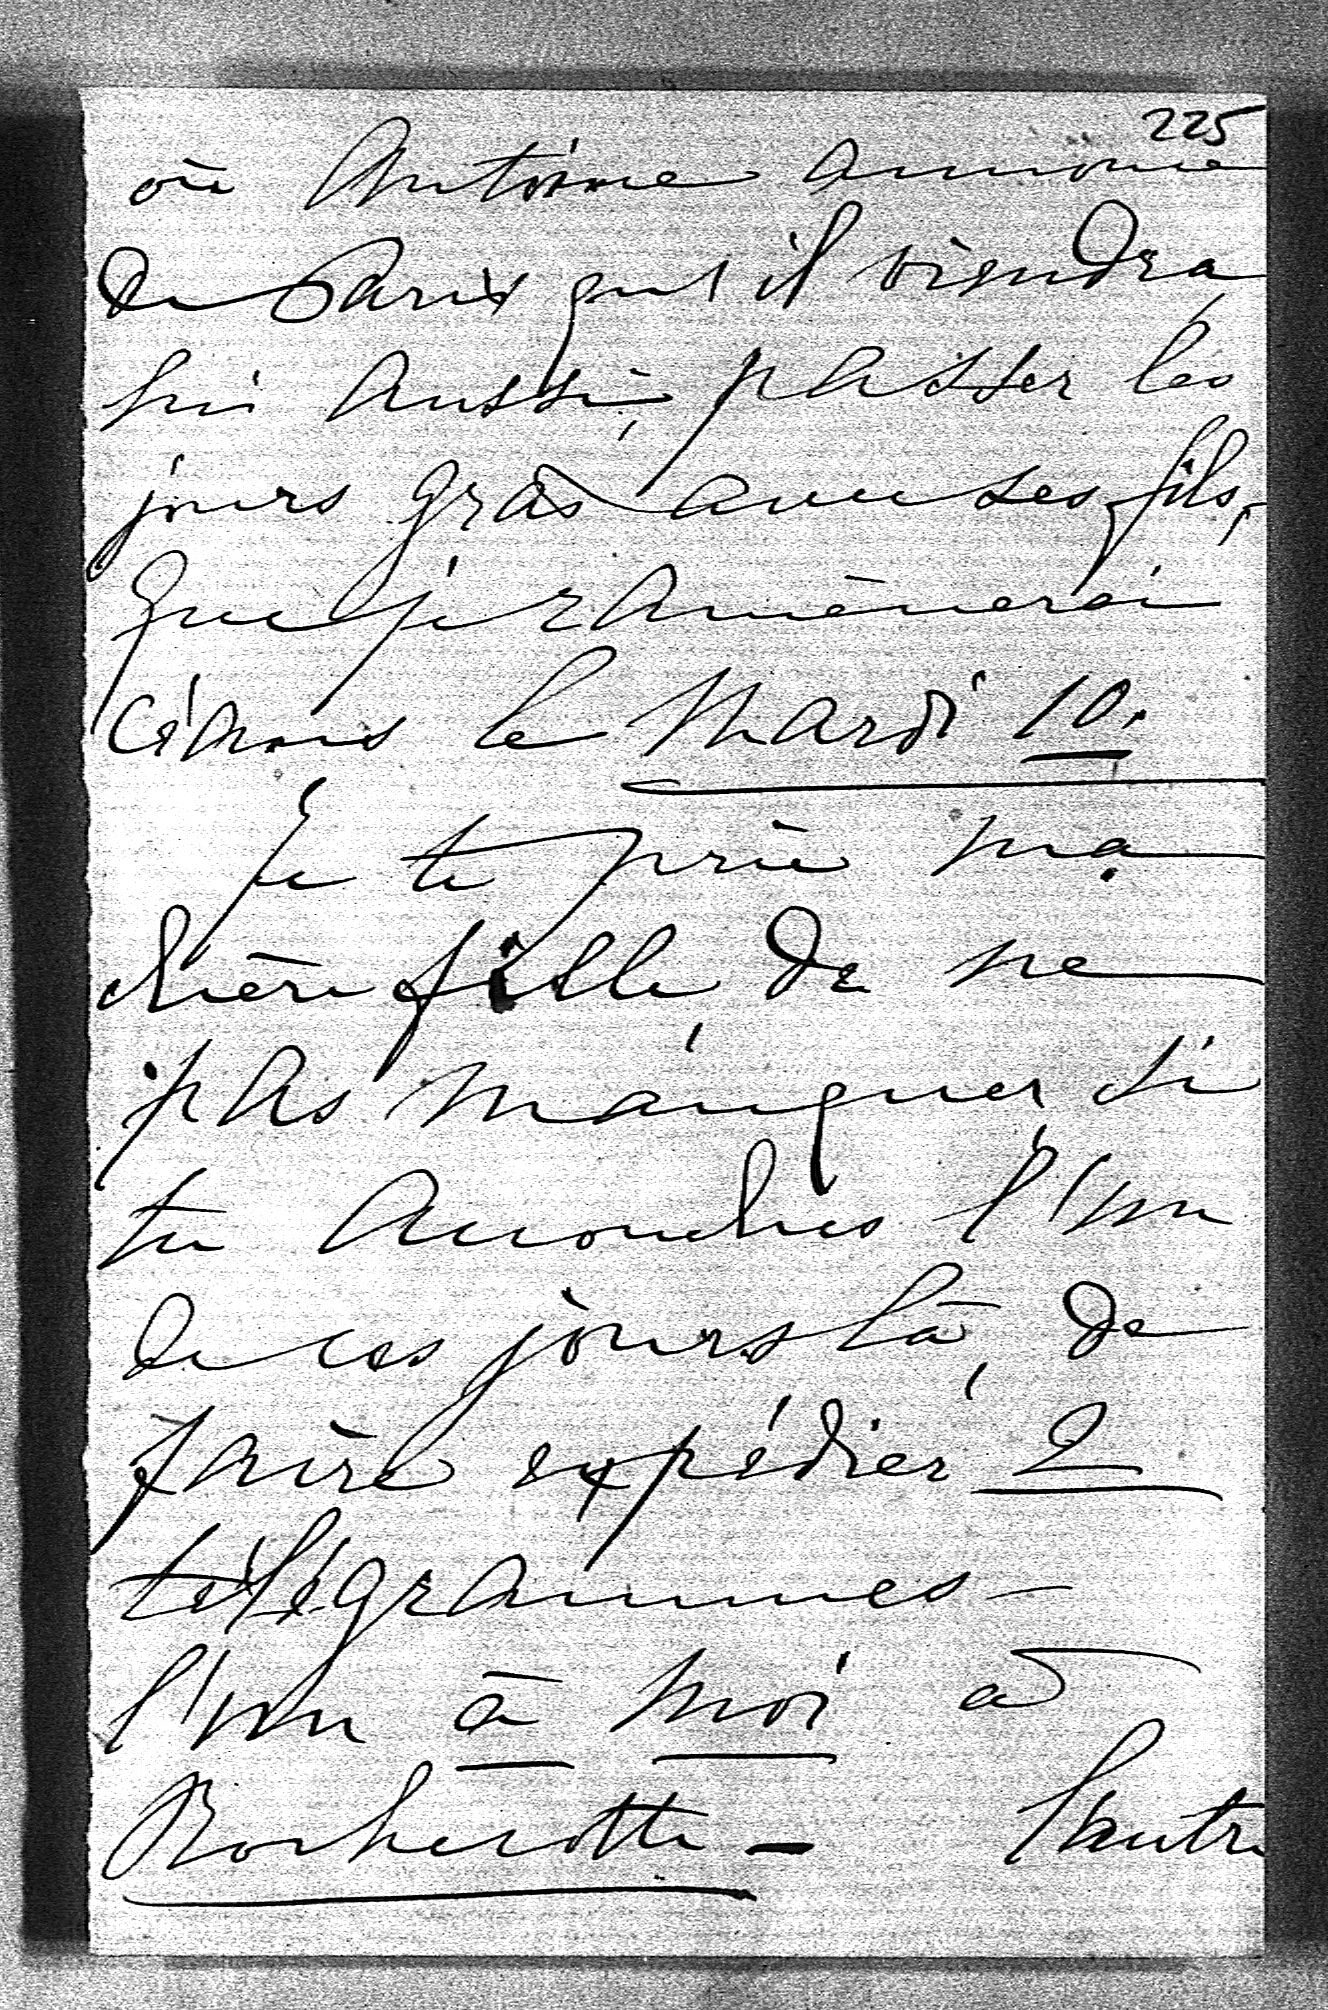 225
où Antoine annonce
de Paris qu'il viendra
lui aussi, passer les
jours gras avec ses fils,
que je ramènerai
céans le Mardi 10.
Je te prie ma
chère fille de ne
pas manquer, si
tu accouches l'un
de ces jours là, de
faire expédier 2
télégrammes –
l'un à moi à
Rochecotte – l'autre